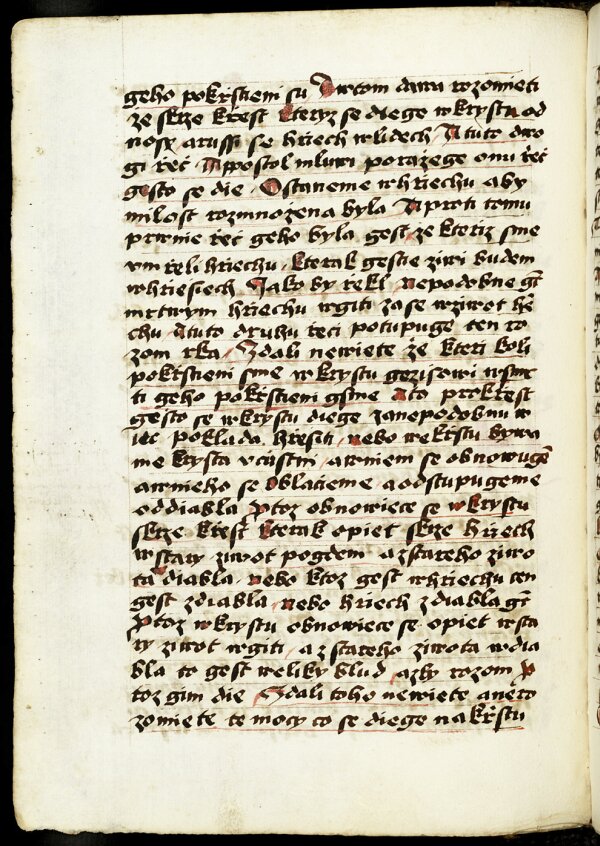 geho pokrstieni su A wtom dawa rozomieti
ze skrze krest kteryz se diege wkrystu od
nosy a russi se hriech wlidech A tuto dru
gi řeč Appostol mluwi porazege onu řeč
gesto se die Ostaneme whriechu aby
milost rozmnozena byla A proti tomu
prwnie řeč geho byla gest ze kteriz sme
vmřeli hriechu kterak gestie ziwi budem
whriesiech Jako by řekl nepodobne gt
mrtwym hriechu wgiti zase wziwot hři
chu A tuto druhu řeci potupuge ten ro
zom rka Zdali newiete že kteri koli
pokrstieni sme wkrystu gezisowi wsmr
ti geho pokrstieni gsme A to pro křest
gesto se wkrystu diege zanepodobnu w
iec poklada hresiti nebo wekrstu bywa
me krysta vcastni awniem se obnowugem
awnieho se oblacieme a odstupugeme
oddiabla protoz obnowiece se wkrystu
skrze křest kterak opiet skrze hriech
wstary ziwot pogdem a zstareho ziwo
ta diabla nebo ktoz gest whriechu ten
gest zdiabla nebo hriech zdiabla gt
protoz wkrystu obnowiece se opiet wsta
ry ziwot wgiti a zstareho ziwota wdia
bla to gest weliky blud azby rozom pro
toz gim die Zdali toho newiete a nero
zomiete te mocy co se diege nakrstu